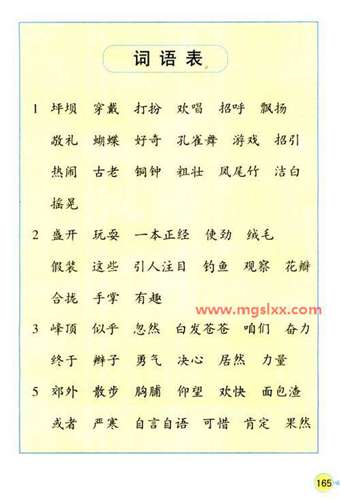 词语表
1 坪坝 穿戴 打扮 欢唱 招呼 飘扬
敬礼 蝴蝶 好奇 孔雀舞 游戏 招引
热闹 古老 铜钟 粗壮 凤尾竹 洁白
摇晃
2 盛开 玩耍 一本正经 使劲 绒毛
假装 这些 引人注目 钓鱼 观察 花瓣
合拢 手掌 有趣
www.mgslxx.com
3 峰顶 似乎 忽然 白发苍苍 咱们 奋力
终于 辫子 勇气 决心 居然 力量
5 郊外 散步 胸脯 仰望 欢快 面包渣
或者 严寒 自言自语 可惜 肯定 果然
165